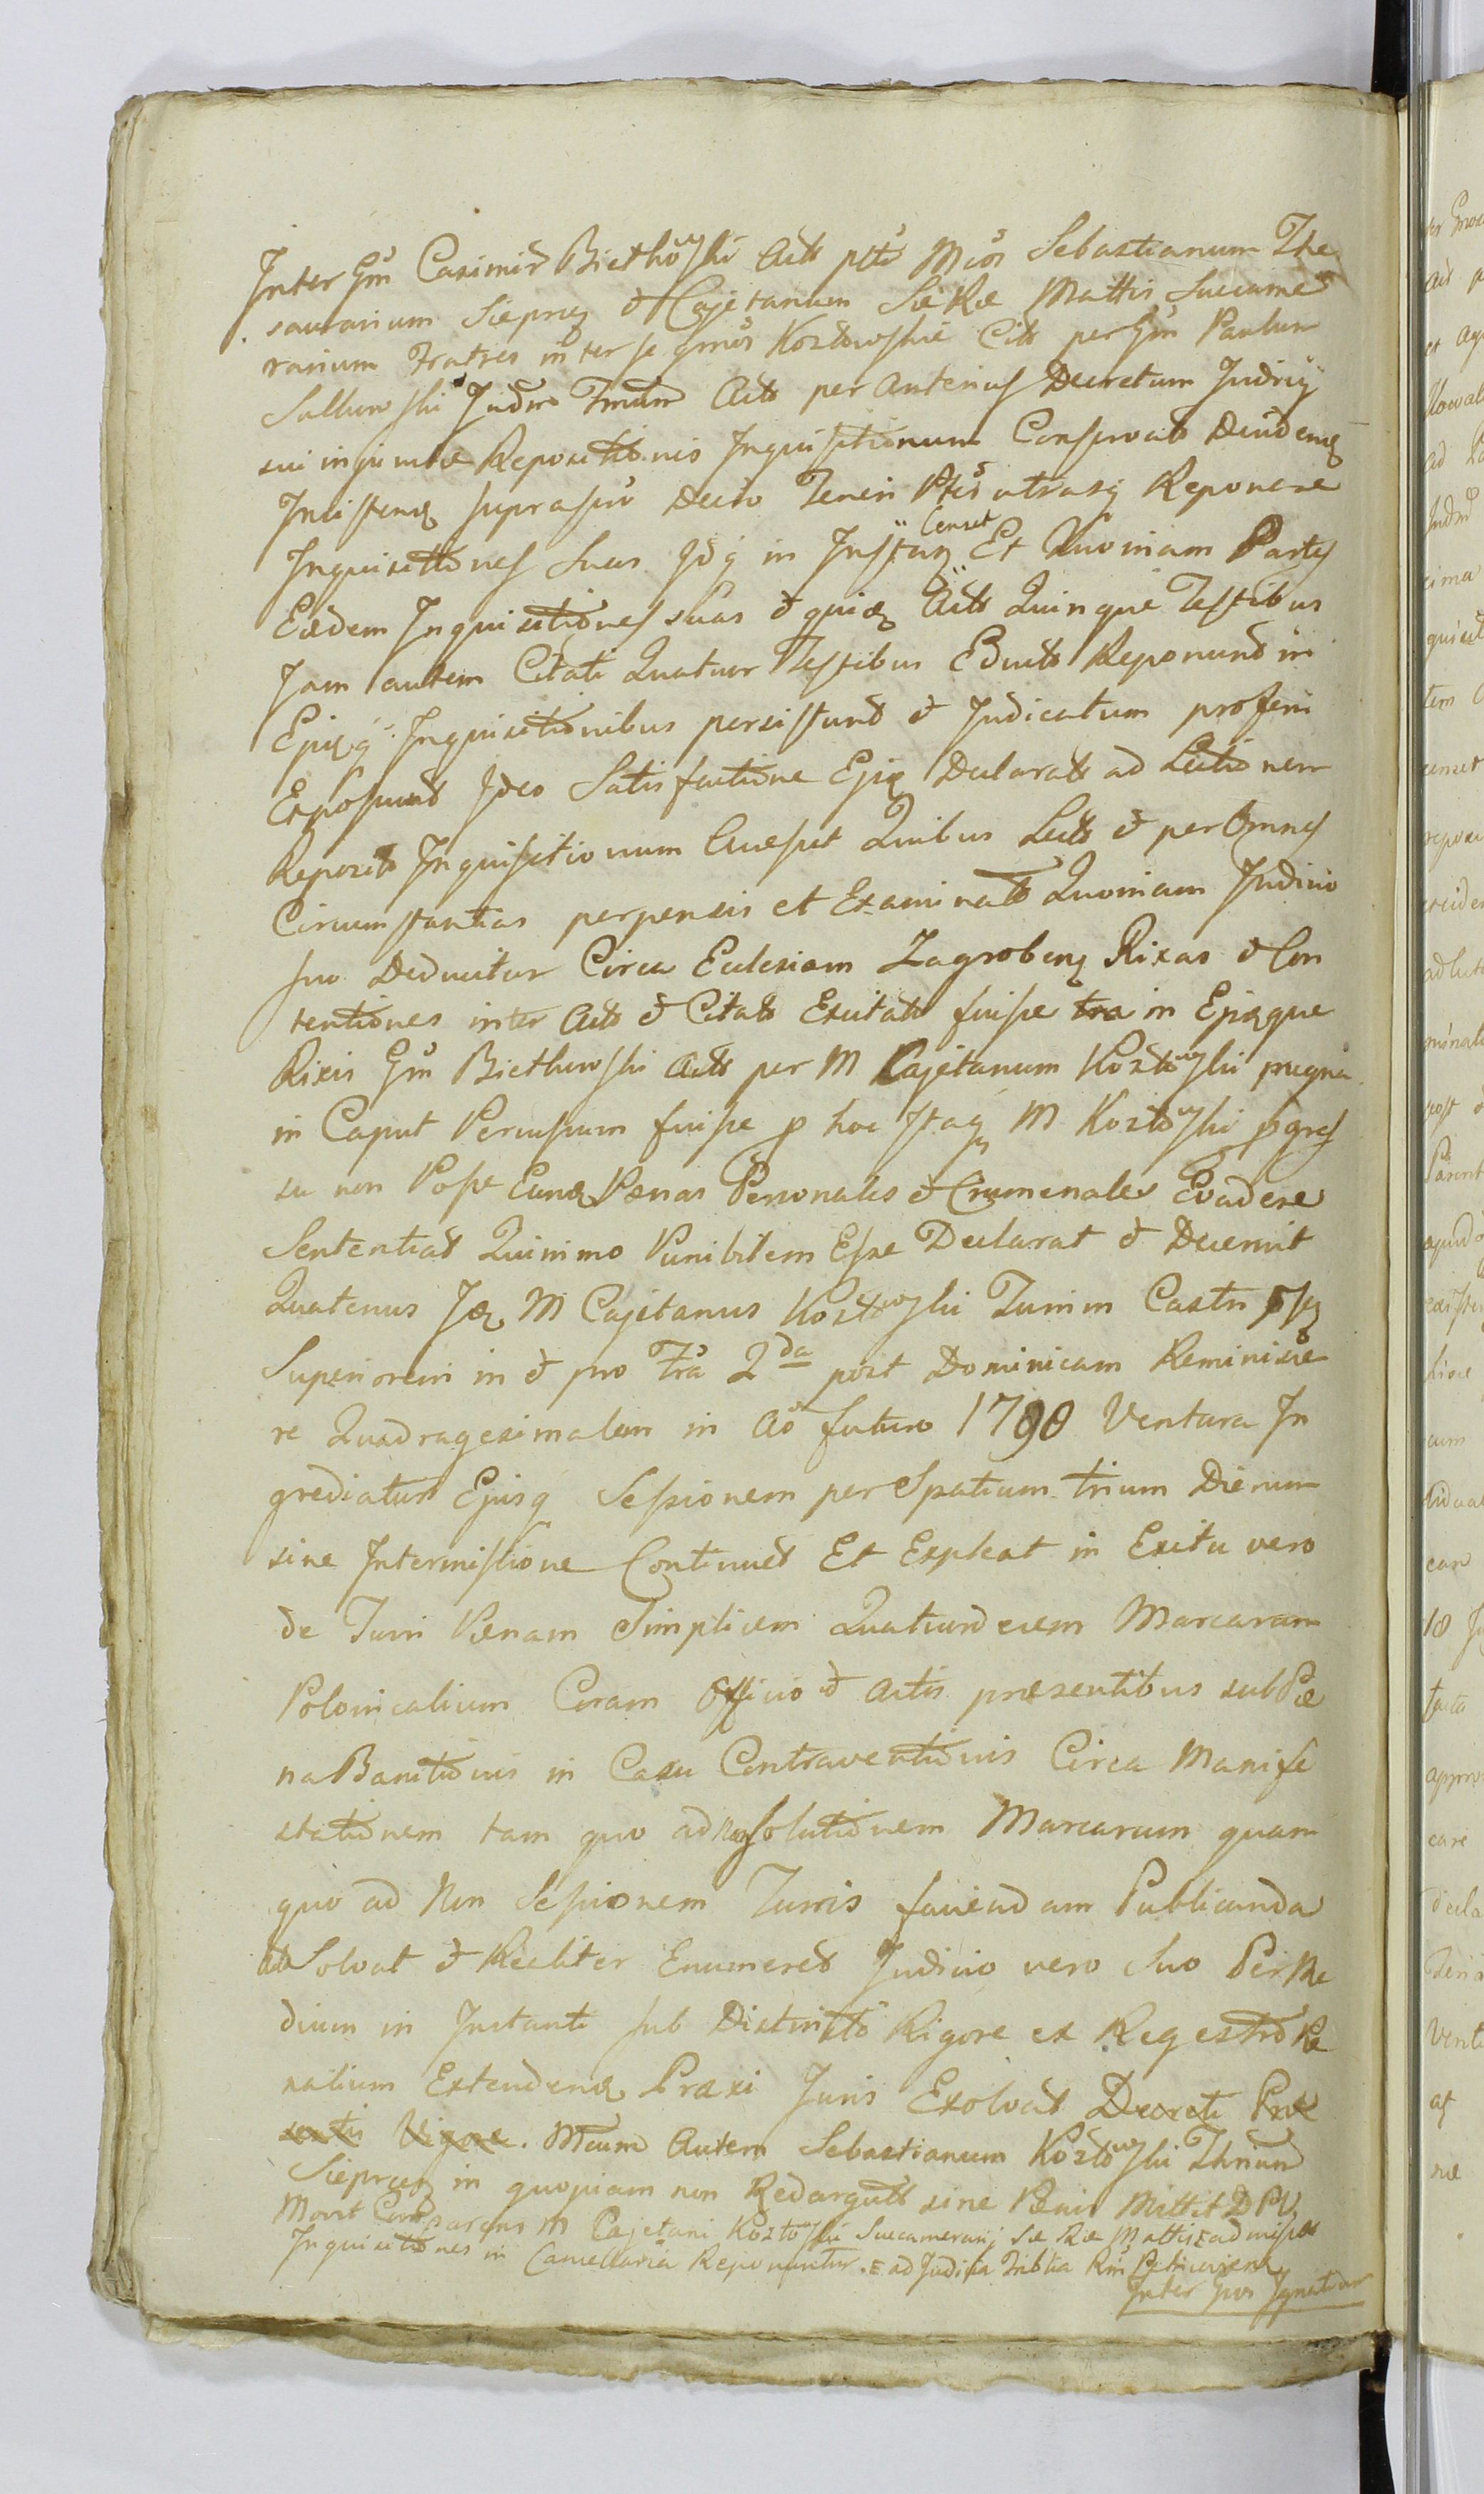 Inter Gm Casimir Biethowski Actt ptte Mcos Sebastianum The
saurarium Sieprcen & Cajetanum Sæ Ræ Mattis Succame
rarium Fratres inter se grnos Kozłowskie Citt per Gm Paulum
Sullimski Judm Tmum Actt per Anterius Decretum Judicij
sui injunctæ Repositionis Inquisitionum Conservatt Decidenq
Insistenq suprascrio Decto Teneri Ptes utrasq Reponere
Inquisitiones Suas Idq in Instan Censet Et Quoniam Partes
Eædem Inquisitiones suas & quiq Actt Quinque Testibus
Jam autem Citati Quatuor Testibus Educts Reponunt in
Ejisq Inquisitionibus persistunt & Judicatum proferri
Exposcunt Ideo Satisfactione Ejis Declarata ad Lectionem
Repositt Inquisitionum Accessit Quibus Lectt & per Omnes
Circumstantias perpensis et Examinatt Quoniam Judicio
suo Deducitur Circa Ecclesiam Zagrobenq Rixas & Con
tentiones inter Actt & Citatt Excitatt fuisse tra in Ejisque
Rixis Gm Biethowski Actt per M Cajetanum Kozłowski pugna
in Caput Percussum fuisse p hoc Itaq M Kozłowski pgres
su non Posse Eunq Pœnas Personales & Criminales Evadere
Sententiat Quinimo Punibilem Esse Declarat & Decernit
Quatenus Jdq M Cajetanus Kozłowski Turrim Castri
Superiorem in & pro Fra 2da post Dominicam Reminisce
re Quadragesimalem in Ao futuro 1790 Ventura In
grediatur Ejusq Sessionem per Spatium trium Dierum
sine Intermissione Continuet Et Expleat in Exitu vero
de Turri Pœnam Simplicem Quatuordecem Marcarum
Polonicalium Coram Officio & Actis præsentibus sub Pœ
na Banitionis in Casu Contraventionis Circa Manife
stationem tam quo ad non solutionem Marcarum quam
quo ad Non Sessionem Turris faciendam Publicanda
Solvat & Realiter Enumeret Judicio vero Suo Per Me
dium in Instanti sub Districtto Rigore ex Regestro Pœ
nalium Extendenq Praxi Juris Exolvat Decreti Præ
sentis Vigore. Mcum Autem Sebastianum Kozłowski Thrium
Sieprcen in quopiam non Redargutt sine Pœnis Mittit D P V
Movit Comparens M Cajetani Kozłowski Succamerarij Sæ Ræ Mattis E admissa
Inquisitiones in Cancellaria Reponuntur. E ad Judicia Triblia Rni Petricovien
Inter Gos Ignatium